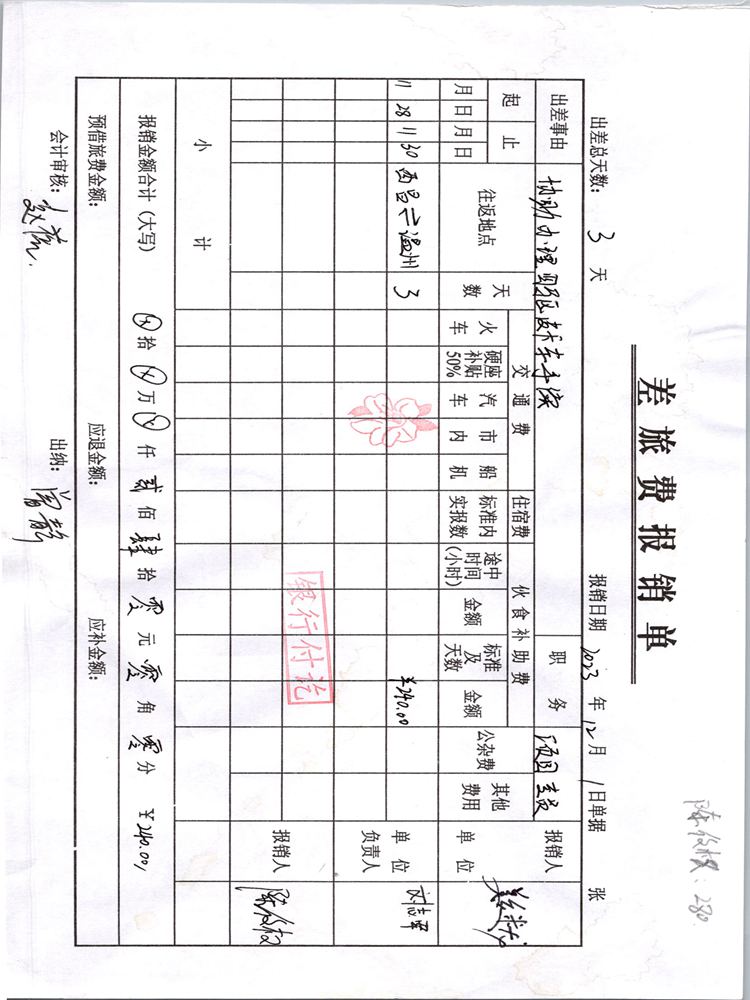 差旅费报销单
陈俊权：280
出差总天数：3 天 报销日期 2023 年 12 月 1 日 单据 张
出差事由 协助办理 车手续 职务 项目专员 报销人
起 止 往返地点 天数 交通费 住宿费 伙食补助费 公杂费 其他费用 单位
月 日 月 日 火车 硬座补贴50% 汽车 市内 船机 标准内实报数 途中时间(小时) 金额 标准及天数 金额
11 28 11 30 西昌⇌温州 3 ￥240.00
单位负责人 刘志军
银行付讫
报销人 陈俊权
小计
报销金额合计（大写） ⊗拾⊗万⊗仟贰佰肆拾零元零角零分 ￥240.00
预借旅费金额： 应退金额： 应补金额：
会计审核： 出纳：曾静